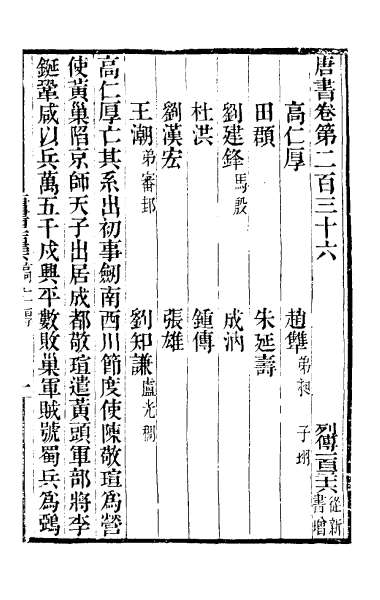 唐書卷第二百三十六 列傳一百 從新書增
高仁厚 趙犨 弟昶 子珝
田頵 朱延壽
劉建鋒 馬殷 成汭
杜洪 鍾傳
劉漢宏 張雄
王潮 弟審邽 劉知謙 盧光稠
高仁厚亡其系出初事劍南西川節度使陳敬瑄為營
使黃巢陷京師天子出居成都敬瑄遣黃頭軍部將李
鋋鞏咸以兵萬五千戍興平數敗巢軍賊號蜀兵為鵶
一